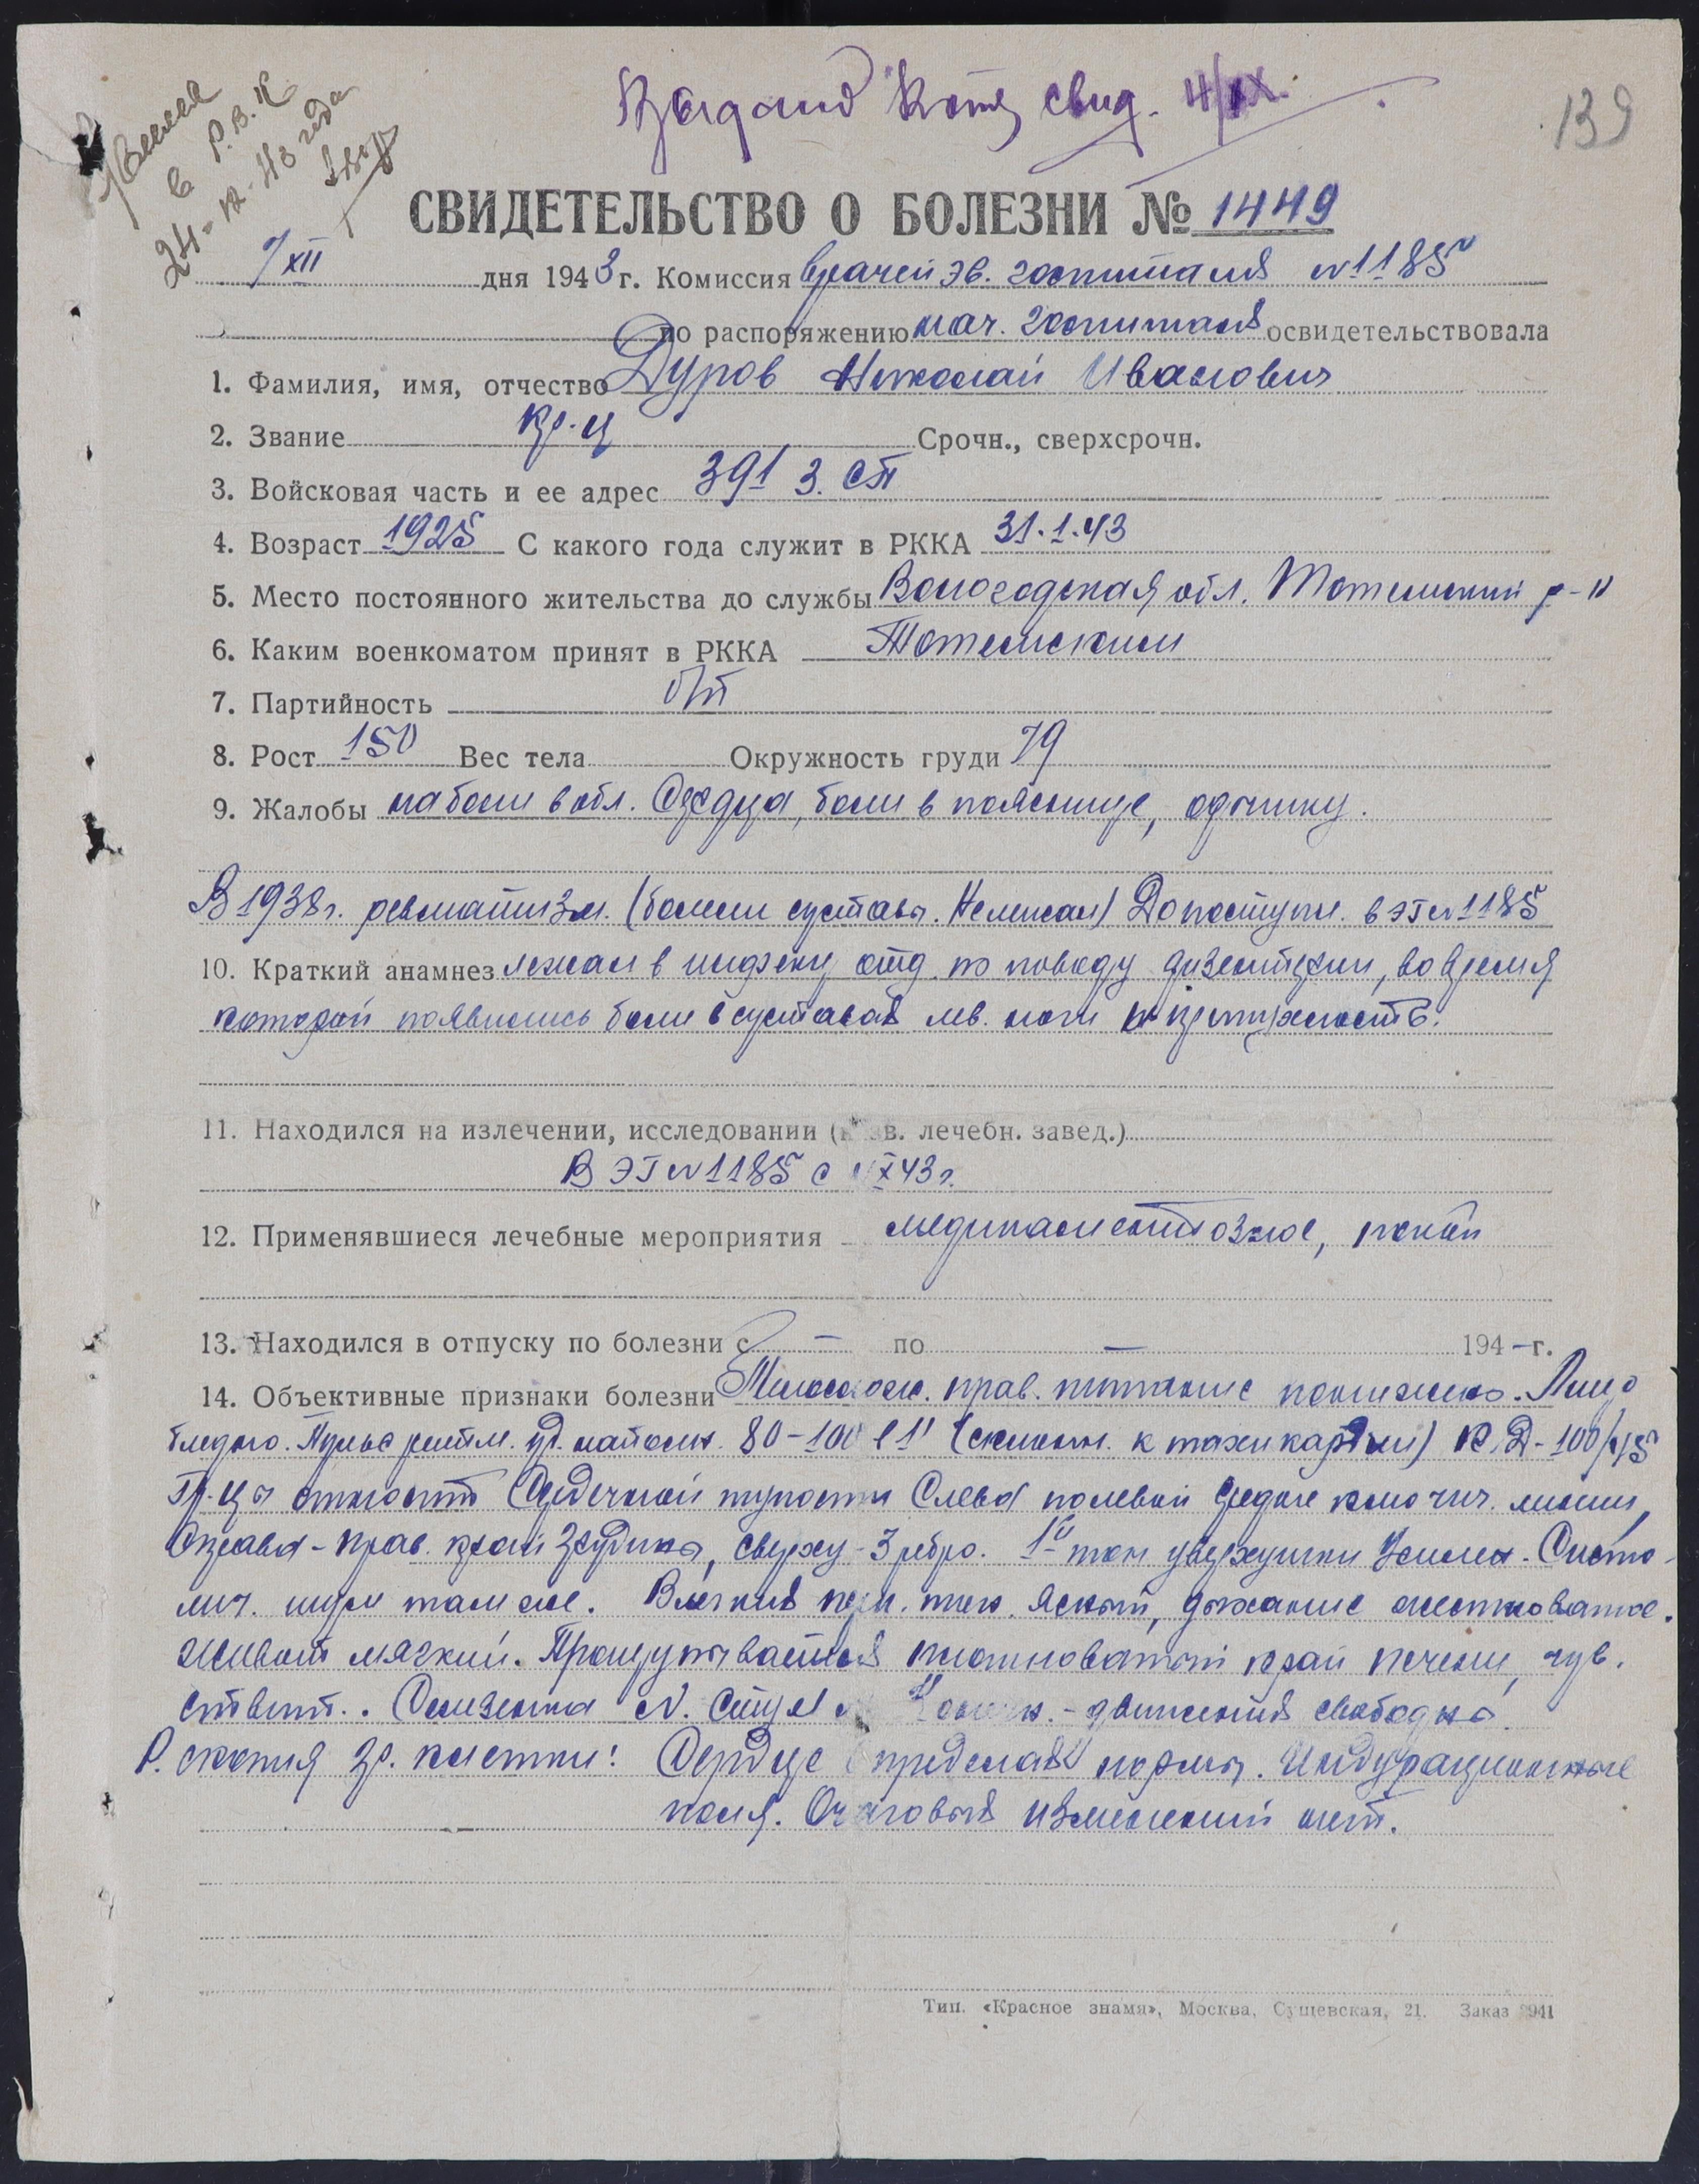 Явился
в Р.В.К
24-12-43 года
Выдано Копия свид. 4/IX.
139
СВИДЕТЕЛЬСТВО О БОЛЕЗНИ № 1449
7/XII дня 1943 г. Комиссия врачей эв. госпиталя N 1185
по распоряжению нач. госпиталя освидетельствовала
1. Фамилия, имя, отчество Дуров Николай Иванович
2. Звание кр-ц Срочн., сверхсрочн.
3. Войсковая часть и ее адрес 391 з. сп
4. Возраст 1925 С какого года служит в РККА 31.1.43
5. Место постоянного жительства до службы Вологодская обл. Тотемский р-н
6. Каким военкоматом принят в РККА Тотемским
7. Партийность б/п
8. Рост 150 Вес тела Окружность груди 79
9. Жалобы на боли в обл. сердца, боли в пояснице, одышку.
В 1938 г. ревматизм. (болели суставы. Не лежал) До поступл. в ЭГ N 1185
10. Краткий анамнез лежал в инфекц отд. по поводу дизентерии, во время
которой появились боли в суставах лв. ноги и припухлость.
11. Находился на излечении, исследовании ( в. лечебн. завед.)
В ЭГ N 1185 с X 43 г.
12. Применявшиеся лечебные мероприятия медикаментозное, покой
13. Находился в отпуску по болезни с – по – 194 – г.
14. Объективные признаки болезни Телослож. прав. питание понижено. Лицо
бледно. Пульс ритм. уд. наполн. 80-100 в 1' (склонн. к тахикардии) К.Д-100/45
Гр-цы относит сердечной тупости слева по левой средне ключич. линии,
справа - прав. край грудины, сверху - 3 ребро. 1й тон у верхушки усилен. Систо-
лич. шум там же. В легких перк. тон. ясный, дыхание жестковатое.
Живот мягкий. Прощупывается плотноватый край печени, чув.
ствит.. Селезенка N. Стул Конечн. - движения свободны.
Р. скопия гр. клетки: Сердце в пределах нормы. Индурационные
поля. Очаговых изменений нет.
Тип. «Красное знамя», Москва, Сущевская, 21. Заказ 941